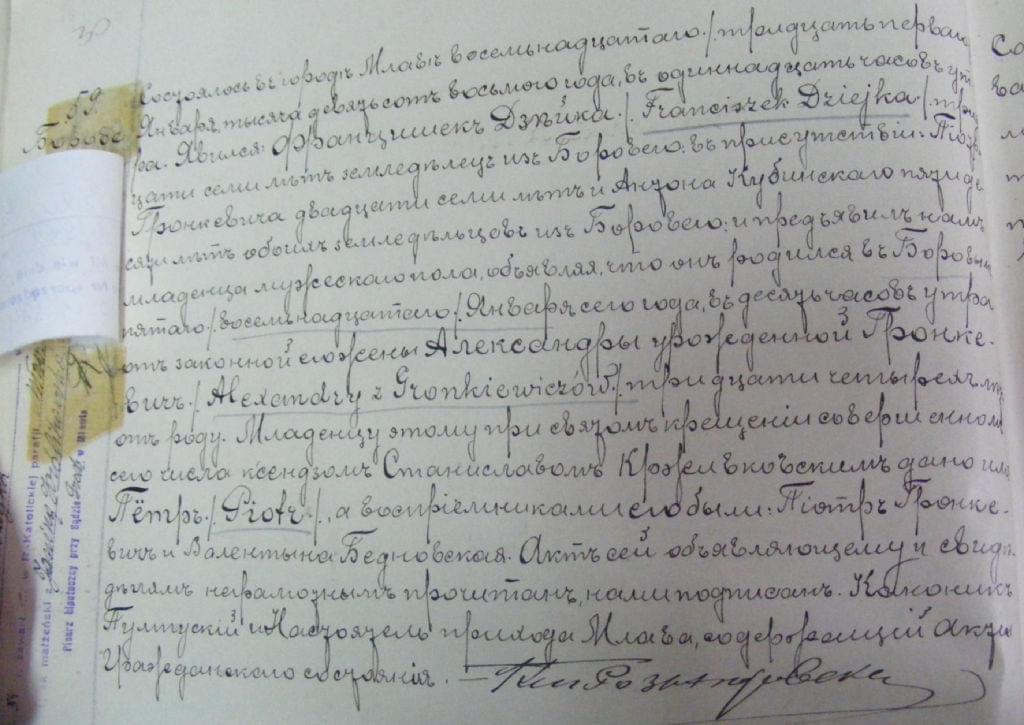 59
Борове
Состоялось въ городѣ Млавѣ восемьнадцатаго /: тридцать перваго
Января, тысяча девятьсотъ восьмого года, въ одиннадцать часовъ ут-
ра. Явился: Францишекъ Дзѣйка /: Franciszek Dziejka :/ трид-
цати семи лѣтъ земледѣлецъ изъ Боровего: въ присутствіи: Піотра
Гронкевича двадцати семи лѣтъ и Антона Кубинскаго пятиде-
сяти лѣтъ обоихъ земледѣльцевъ изъ Боровего: и предъявилъ намъ
младенца мужескаго пола, объявляя, что онъ родился въ Боровымъ
пятаго /: восемьнадцатаго :/ Января сего года, въ десять часовъ утра
отъ законной его жены Александры урожденной Гронке-
вичъ /: Alexandry z Gronkiewiczów :/ тридцати четырехъ лѣтъ
отъ роду. Младенцу этому при святомъ крещеніи совершенномъ
сего числа ксендзомъ Станиславомъ дано имя
Пётръ /: Piotr :/, а воспріемниками его были: Піотръ Гронке-
вичъ и Валентына Бедновская. Актъ сей объявляющему и свидѣ-
дѣтелямъ неграмотнымъ прочитанъ, нами подписанъ. Каноникъ
Пултускій и Настоятель прихода Млава, содержащій Акты
Гражданскаго состоянія.
R.-Katolickiej parafji
małżeński z
Pisarz hipoteczny przy Sądzie Grodz. w Mławie